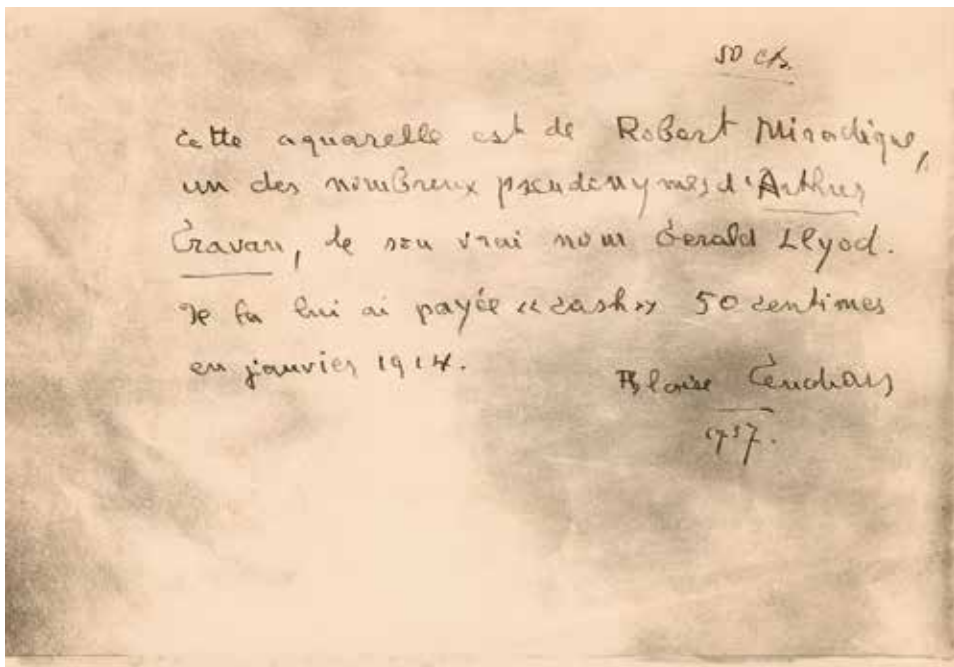 50 cts.
cette aquarelle est de Robert Miradique,
un des nombreux pseudonymes d'Arthur
Cravan, de son vrai nom Gerald Llyod.
Je la lui ai payée «cash» 50 centimes
en janvier 1914.
Blaise Cendrars
1957.